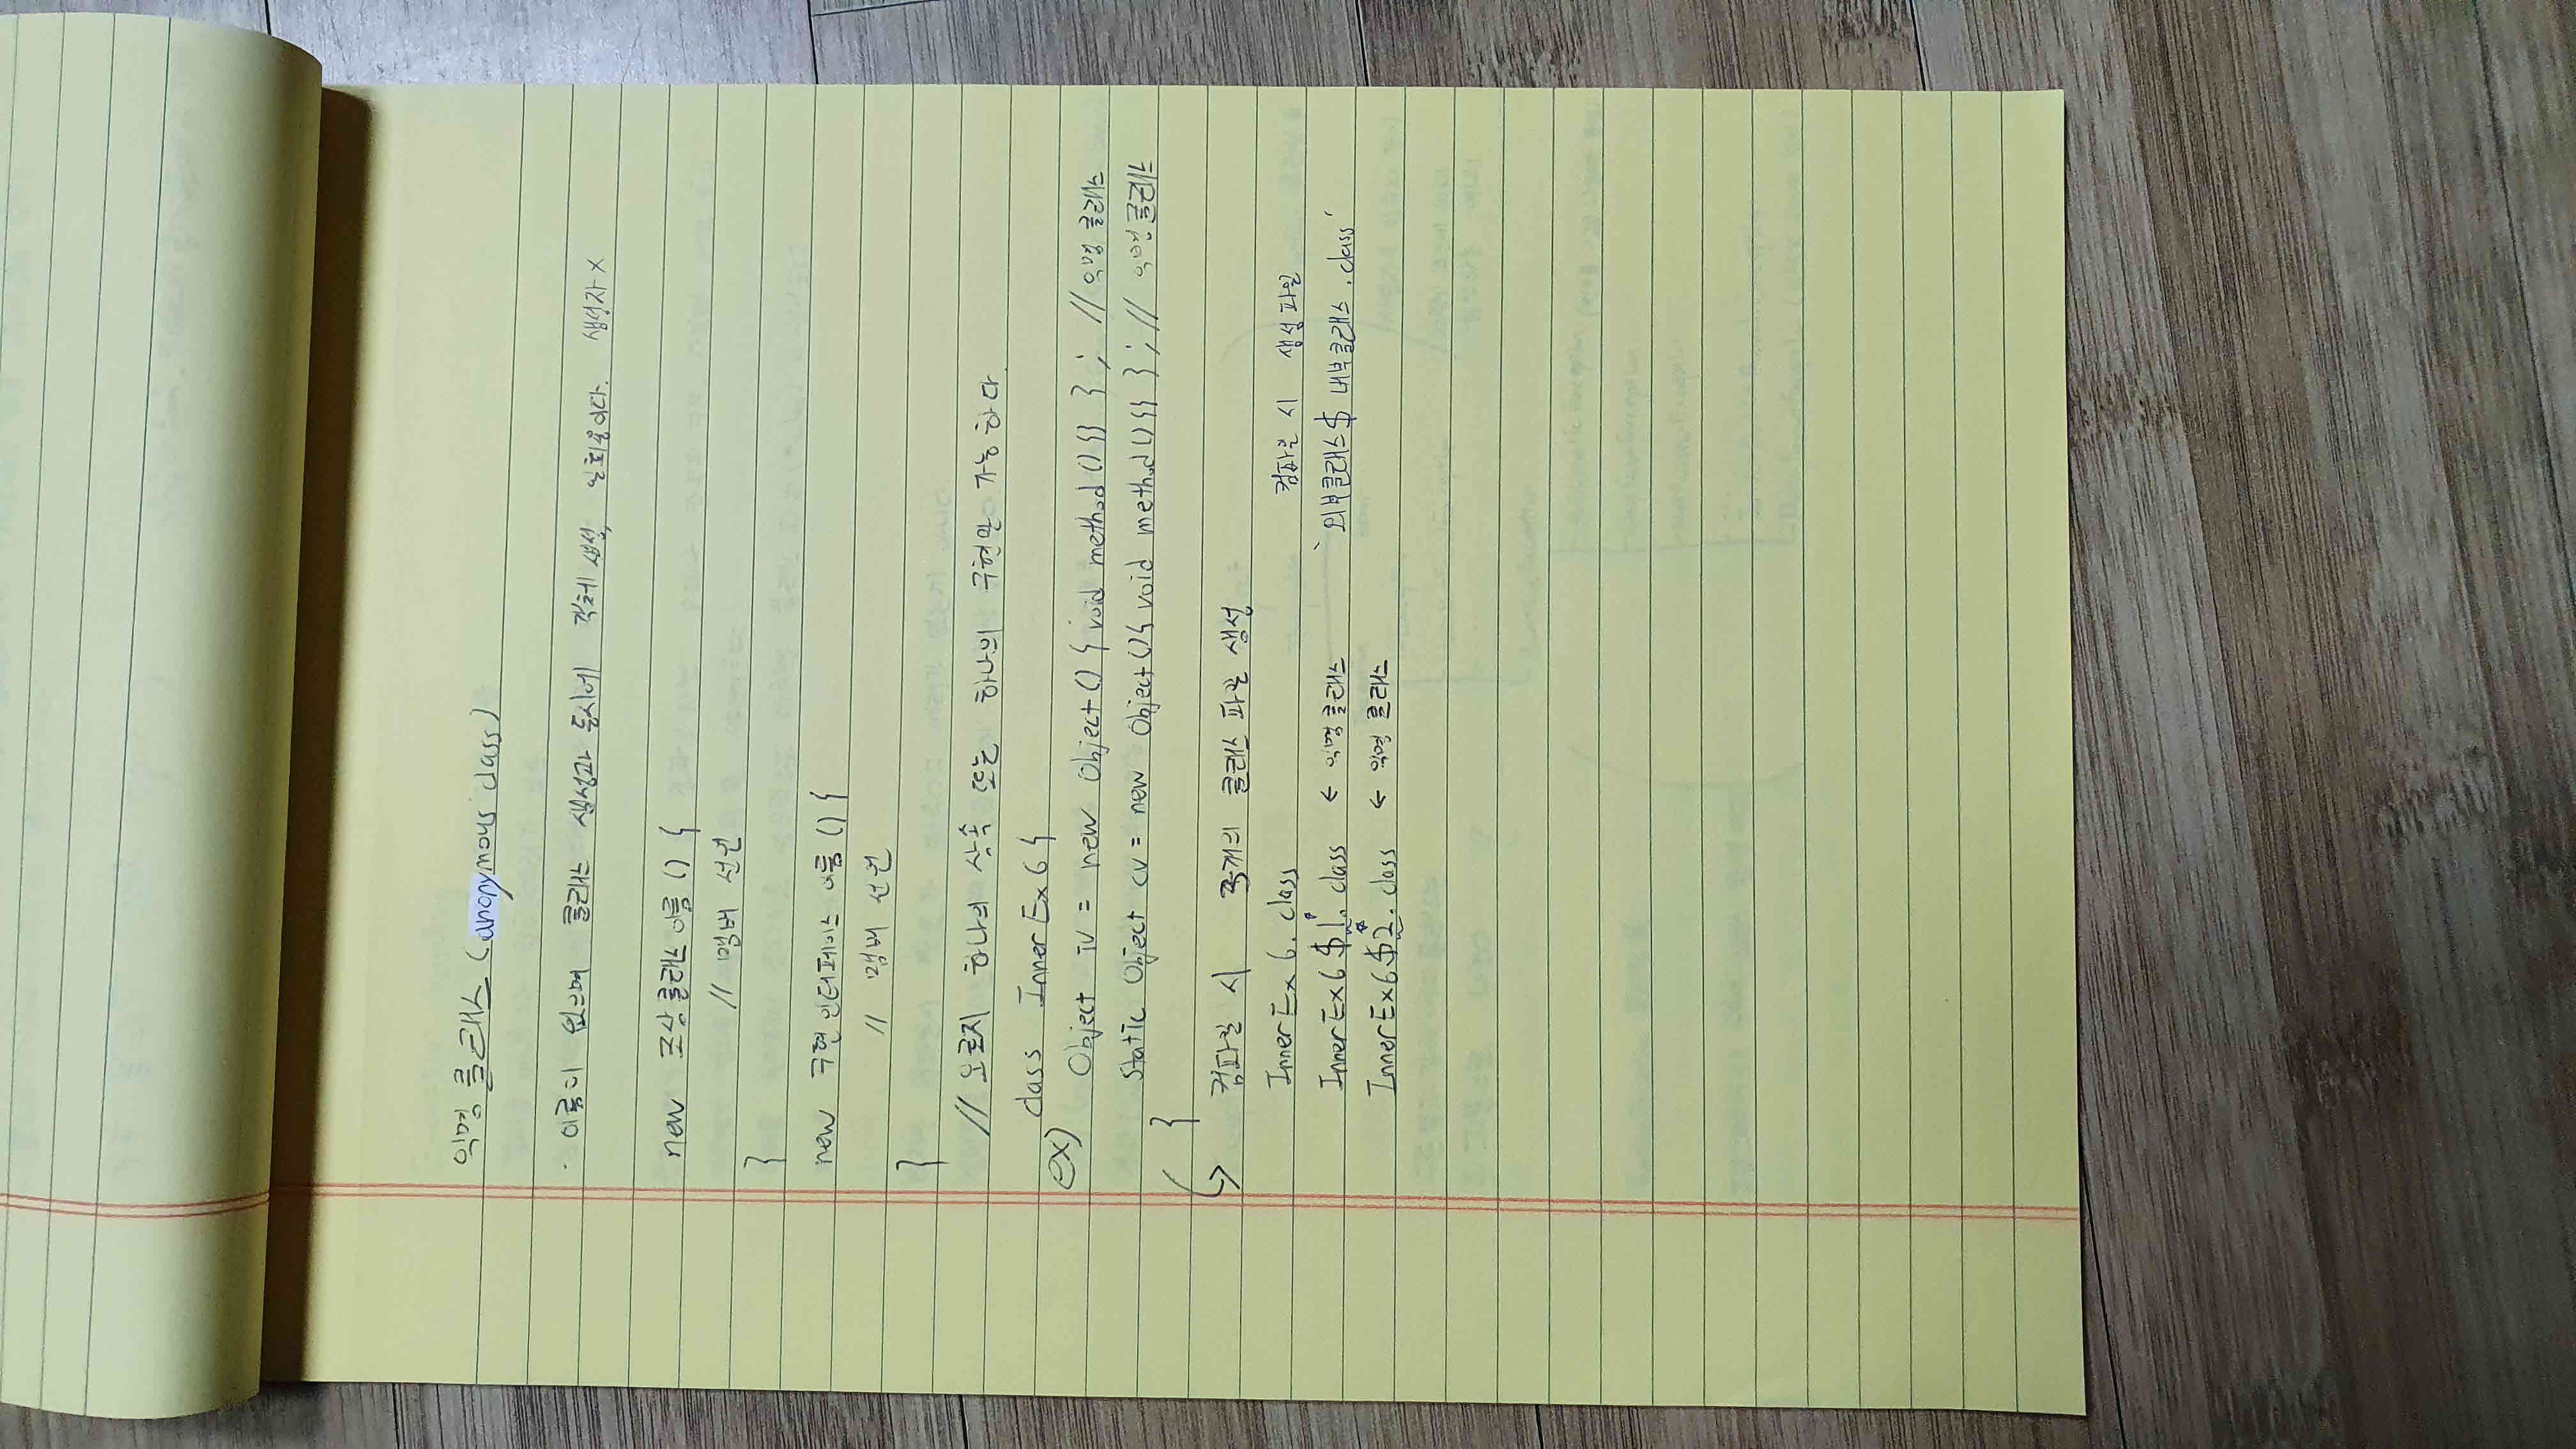 익명 클래스 (anonymous class)
· 이름이 없으며 클래스 생성과 동시에 객체 생성, 일회용이다. 생성자 X
new 조상클래스 이름 () {
// 멤버 선언
}
new 구현 인터페이스 이름 () {
// 멤버 선언
}
// 오로지 하나의 상속 또는 하나의 구현만 가능하다.
class InnerEx6 {
ex)
Object iv = new Object () { void method () {} } ; // 익명 클래스
static Object cv = new Object () { void method () {} } ; // 익명 클래스
}
→ 컴파일 시 3개의 클래스 파일 생성
InnerEx6.class 컴파일 시 생성파일
InnerEx6$1.class ← 익명 클래스 '외부클래스$내부클래스.class'
InnerEx6$2.class ← 익명 클래스